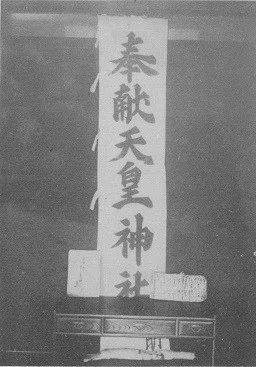 奉献天皇神社